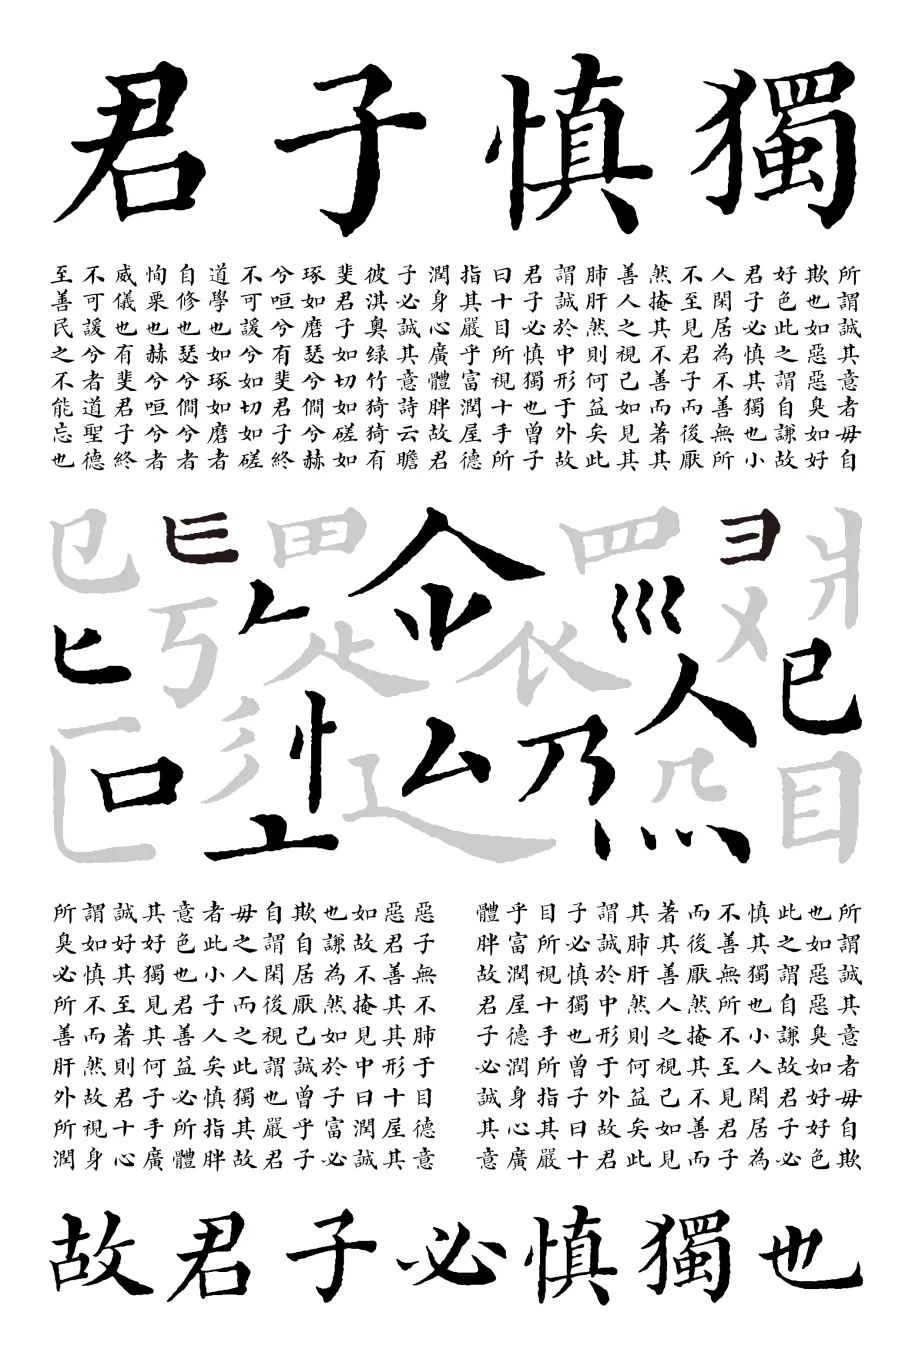 君子慎獨
所謂誠其意者毋自
欺也如惡惡臭如好
好色此之謂自謙故
君子必慎其獨也小
人閑居為不善無所
不至見君子而後厭
然掩其不善而著其
善人之視己如見其
肺肝然則何益矣此
謂誠於中形于外故
君子必慎獨也曾子
曰十目所視十手所
指其嚴乎富潤屋德
潤身心廣體胖故君
子必誠其意詩云瞻
彼淇奧綠竹猗猗有
斐君子如切如磋如
琢如磨瑟兮僩兮赫
兮咺兮有斐君子終
不可諼兮如切如磋
道學也如琢如磨者
自修也瑟兮僩兮者
恂栗也赫兮咺兮者
威儀也有斐君子終
不可諼兮者道聖德
至善民之不能忘也
彐
匕
人
巳
口
厶
乃
目
所謂誠其意者毋自欺也如惡惡
臭如好好色此之謂自謙故君子
必慎其獨也小人閑居為不善無
所不至見君子而後厭然掩其不
善而著其善人之視己如見其肺
肝然則何益矣此謂誠於中形于
外故君子必慎獨也曾子曰十目
所視十手所指其嚴乎富潤屋德
潤身心廣體胖故君子必誠其意
所謂誠其意者毋自欺
也如惡惡臭如好好色
此之謂自謙故君子必
慎其獨也小人閑居為
不善無所不至見君子
而後厭然掩其不善而
著其善人之視己如見
其肺肝然則何益矣此
謂誠於中形于外故君
子必慎獨也曾子曰十
目所視十手所指其嚴
乎富潤屋德潤身心廣
體胖故君子必誠其意
故君子必慎獨也